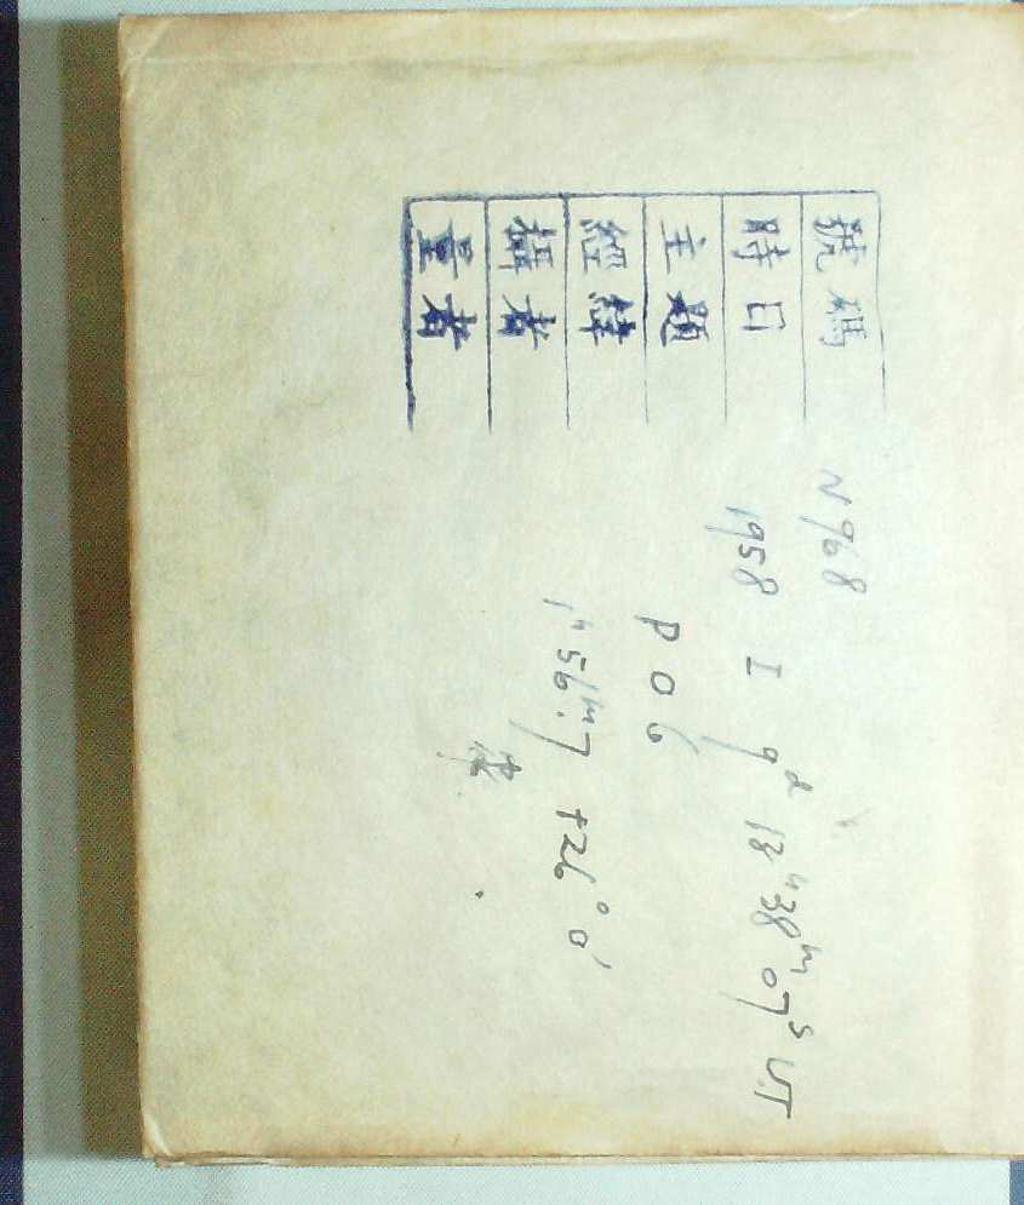 號碼 N968
時日 1958 I 9d 13h 38m 07s UT
主題 P 0 6
經緯 1h 56m.7 +26° 0'
攝者
量者